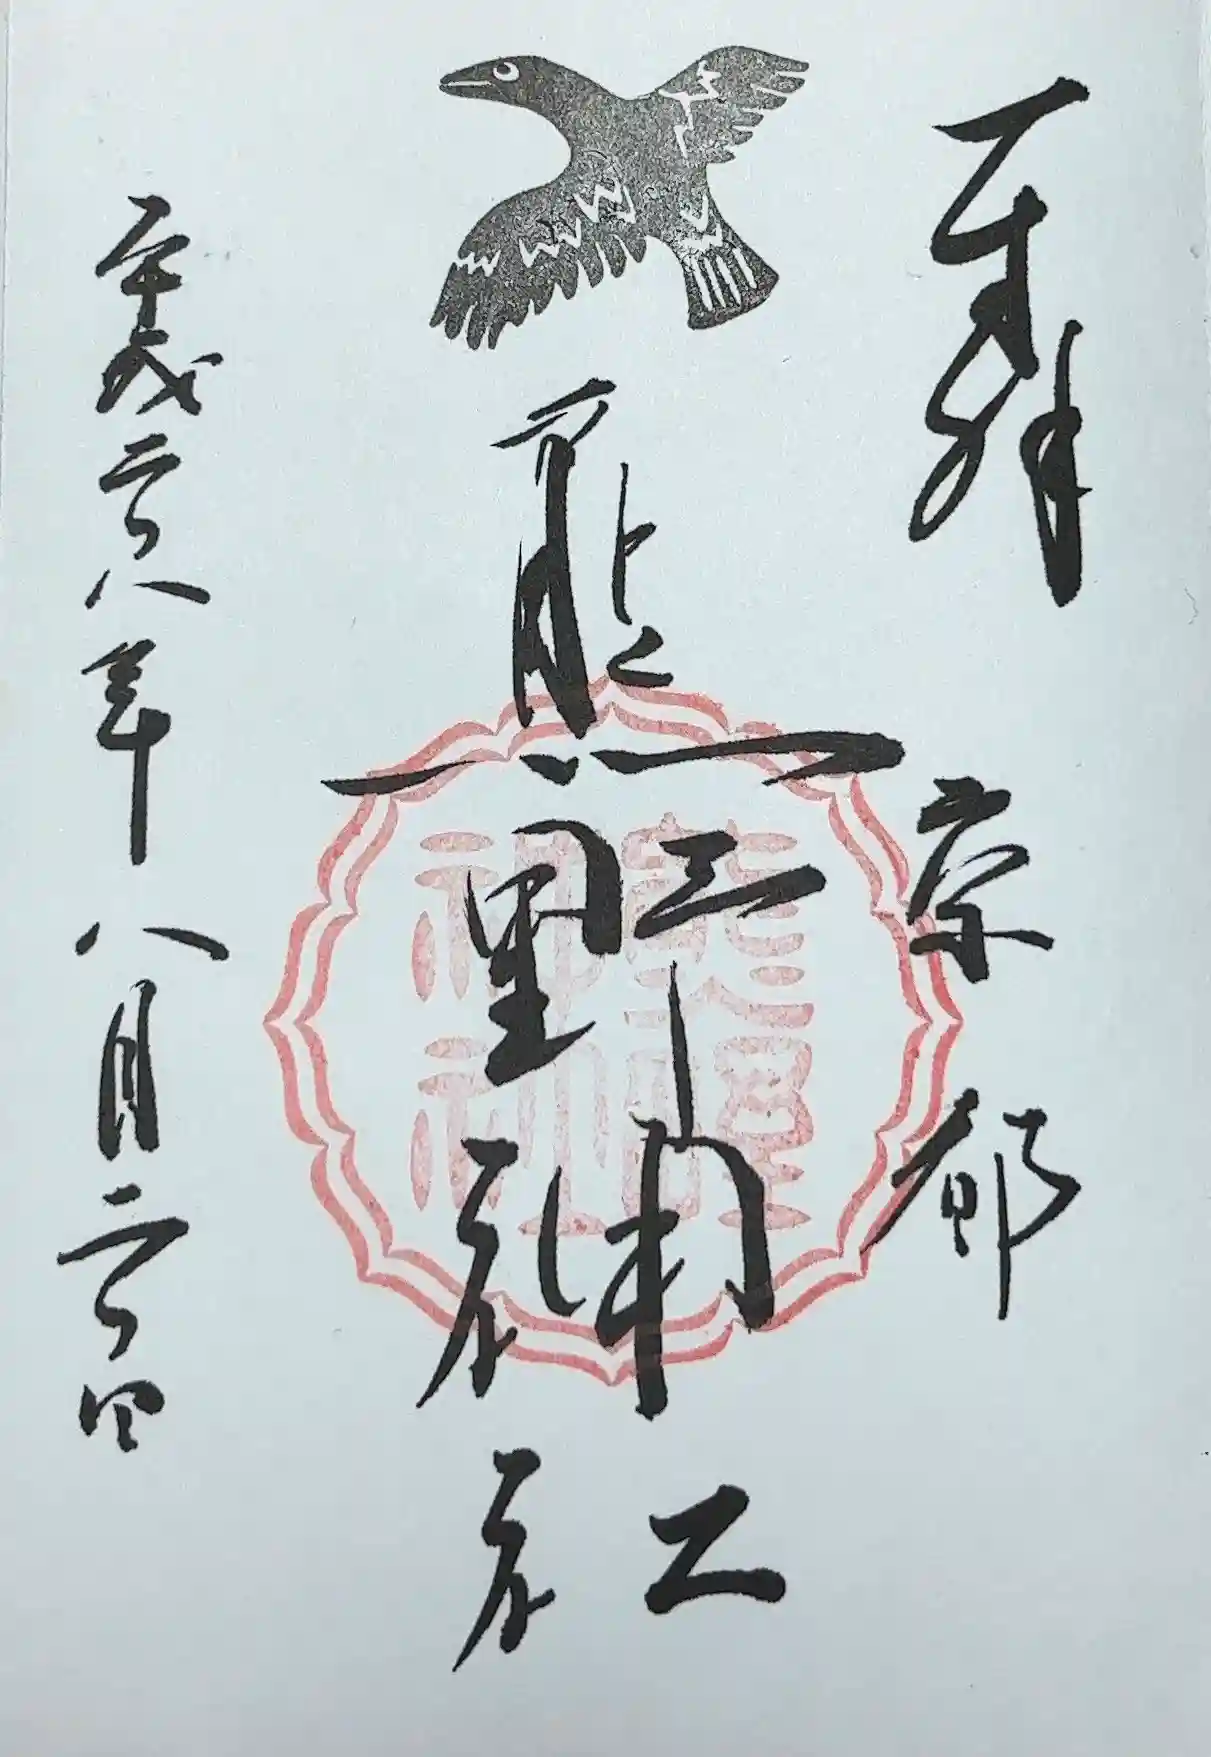 奉拝
京都
熊野神社
熊野神社
平成二十八年八月二十日